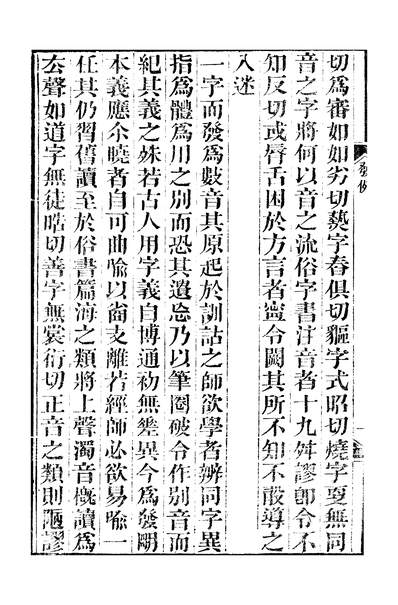 切為審如如劣切㷭字春俱切貙字式昭切燒字更無同
音之字將何以音之㳅俗字書注音者十九舛謬卽令不
知反切或脣舌困於方言者寧令闕其所不知不敢導之
入迷
一字而發為數音其原起於訓詁之師欲學者辨同字異
指為體為用之別而恐其遺忘乃以筆圈破令作別音而
紀其義之殊若古人用字義自博通初無差異今為發明
本義應尒曉者自可曲喩以省支離若經師必欲易喩一
任其仍習舊讀至於俗書篇海之類將上聲濁音槪讀為
去聲如道字無徒晧切善字無裳衍切正音之類則陋謬
發例